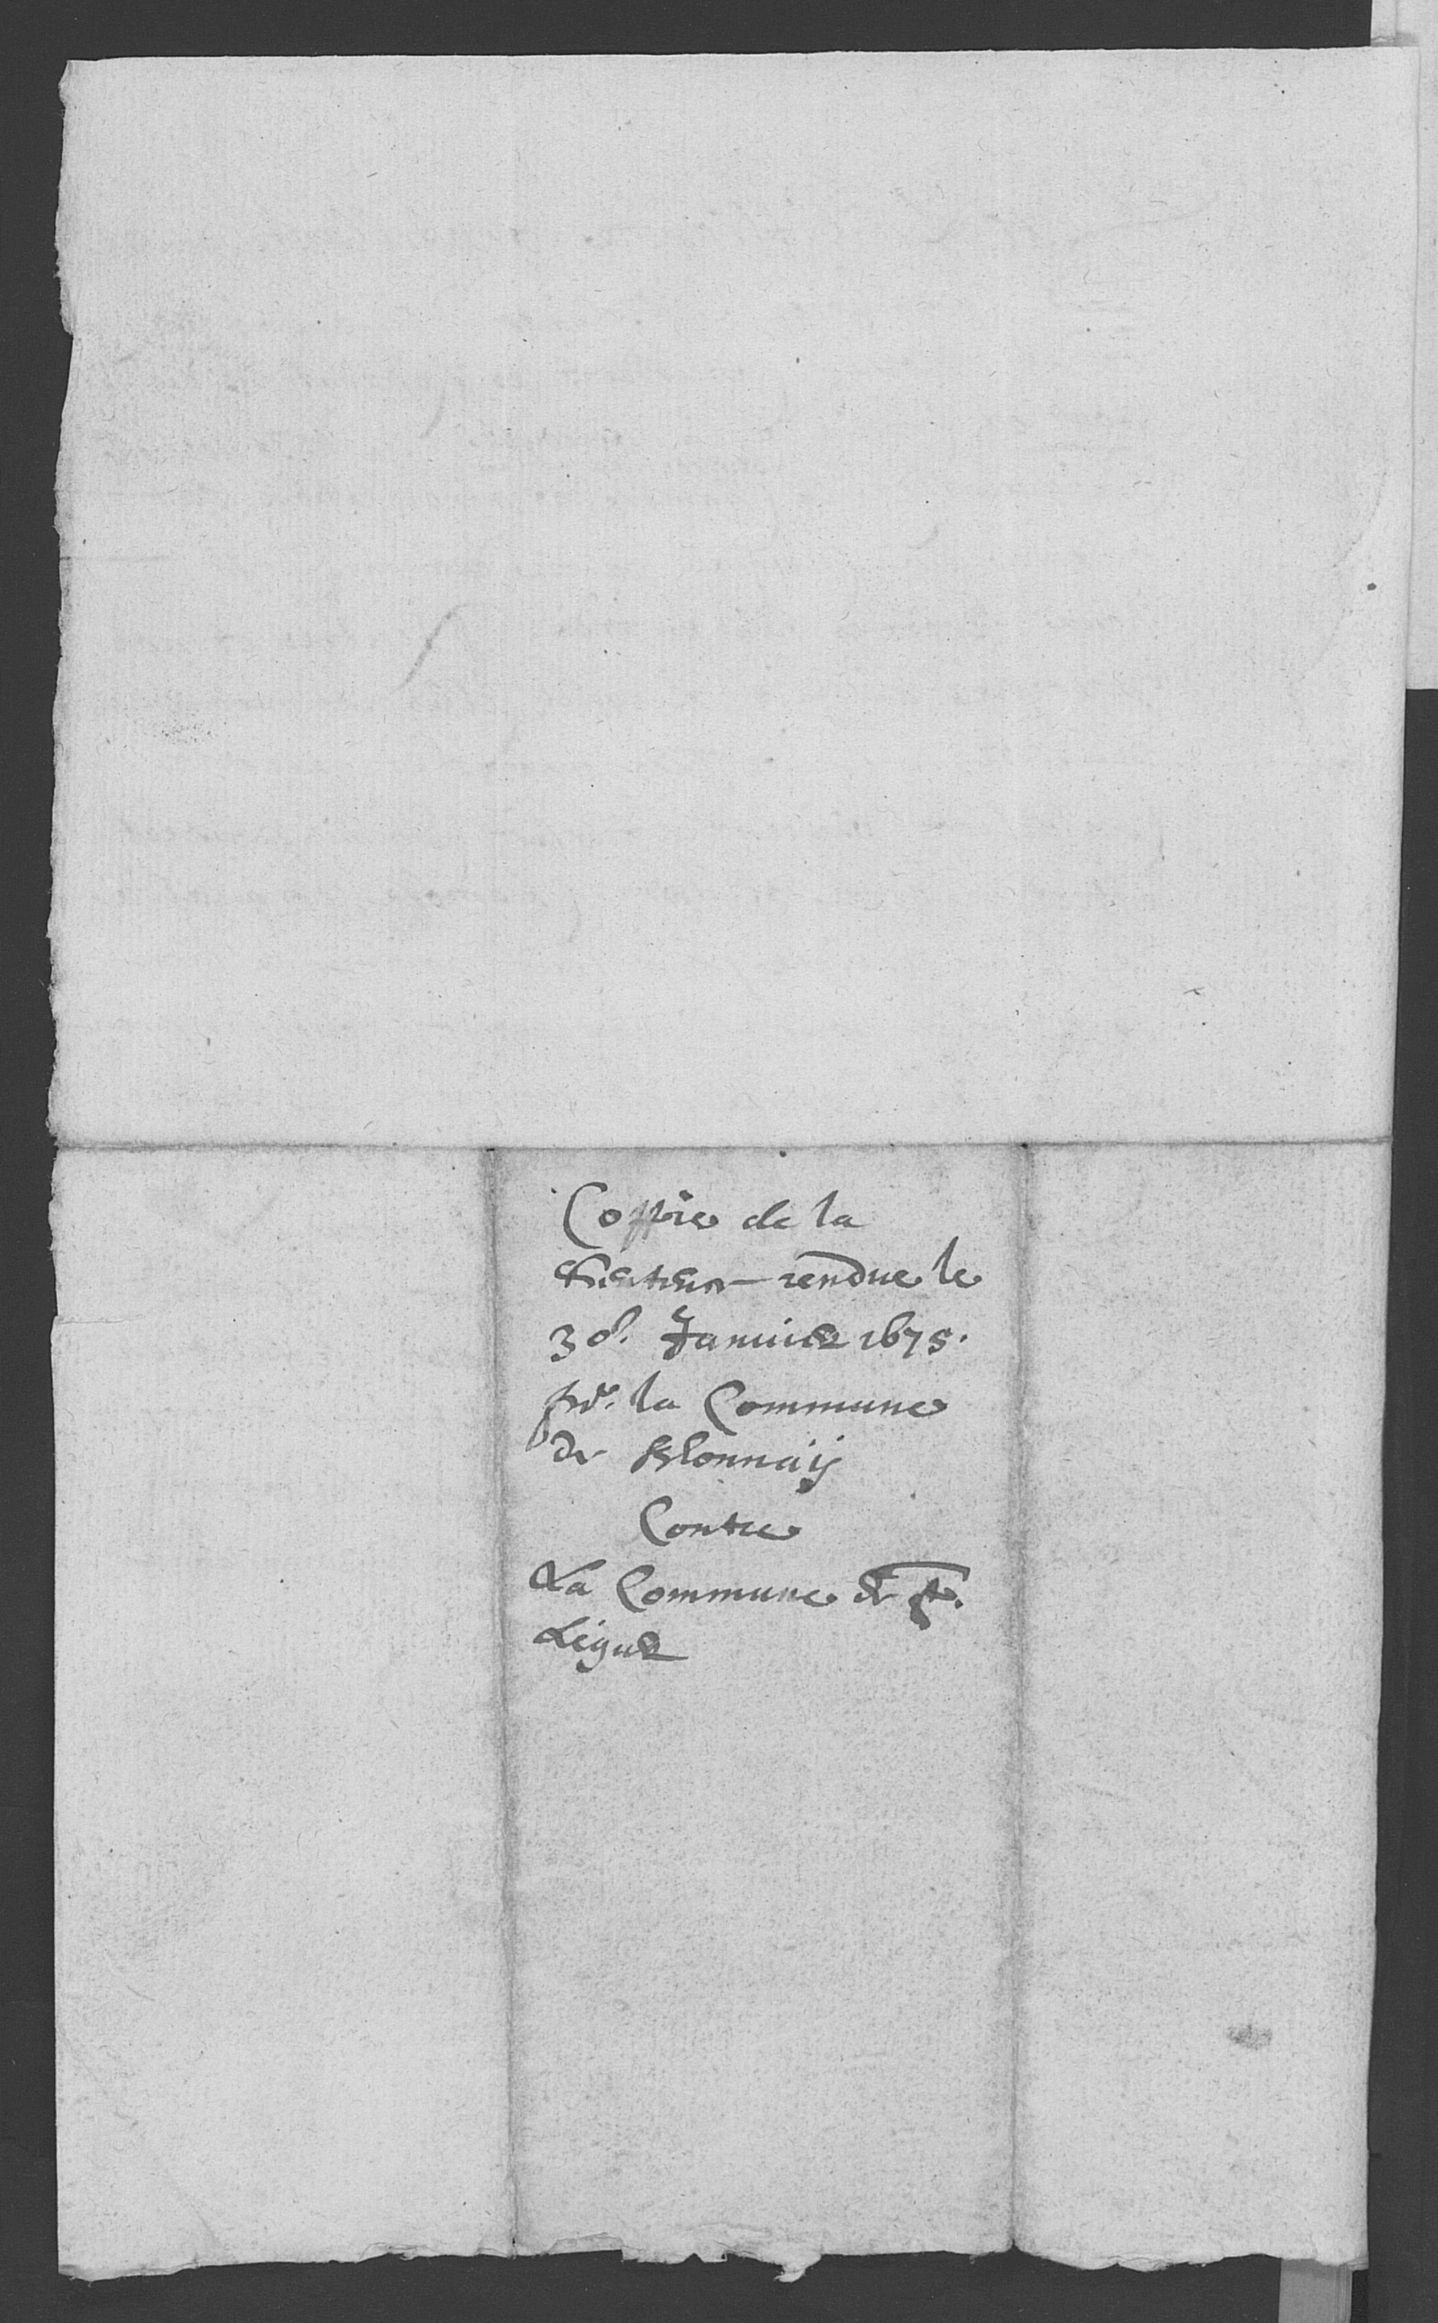 Coppie de la
Sentence rendue le
30e. Januier 1675.
pr. la Commune
de Blonnaÿ
Contre
La Commune de St.
Legier